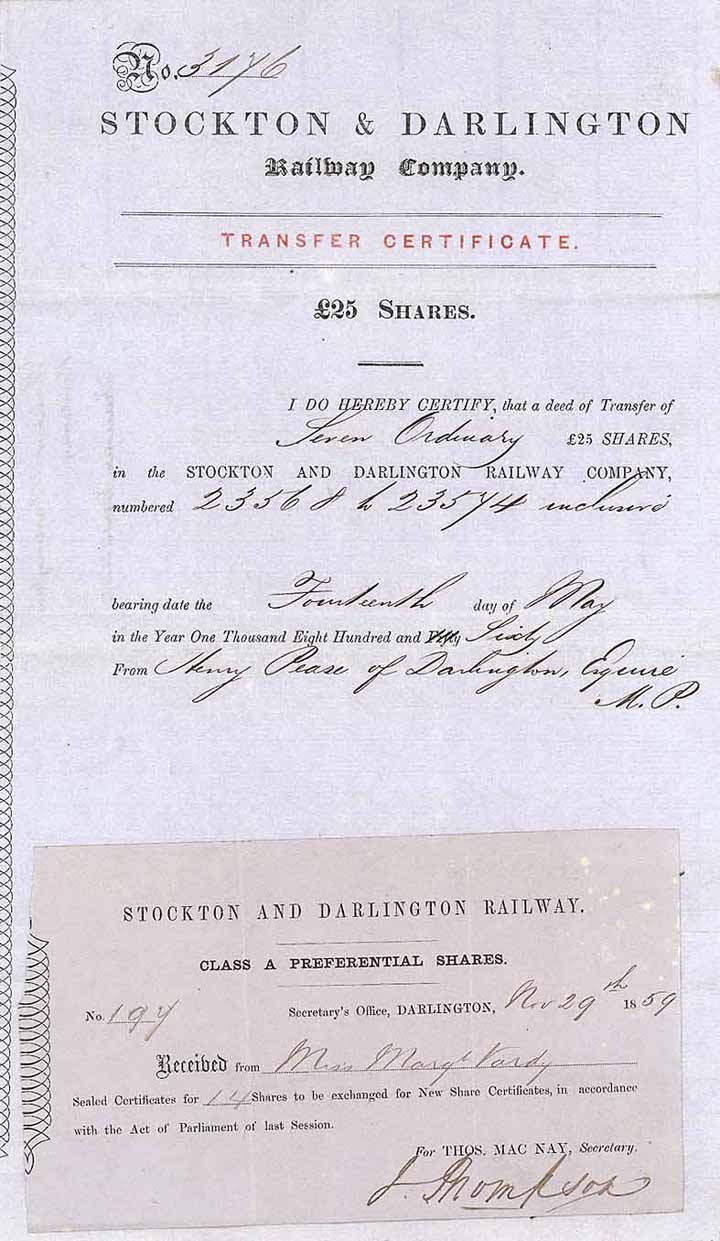 No. 3176
STOCKTON & DARLINGTON
Railway Company.
TRANSFER CERTIFICATE.
£25 SHARES.
I DO HEREBY CERTIFY, that a deed of Transfer of
Seven Ordinary £25 SHARES,
in the STOCKTON AND DARLINGTON RAILWAY COMPANY,
numbered 23568 to 23574 inclusive
bearing date the Fourteenth day of May
in the Year One Thousand Eight Hundred and Fifty Sixty
From Henry Pease of Darlington, Esquire
M. P.
STOCKTON AND DARLINGTON RAILWAY.
CLASS A PREFERENTIAL SHARES.
No. 197 Secretary's Office, DARLINGTON, Nov 29th 1859
Received from Miss Margt Vardy
Sealed Certificates for 14 Shares to be exchanged for New Share Certificates, in accordance
with the Act of Parliament of last Session.
For THOS. MAC NAY, Secretary.
J. Thompson